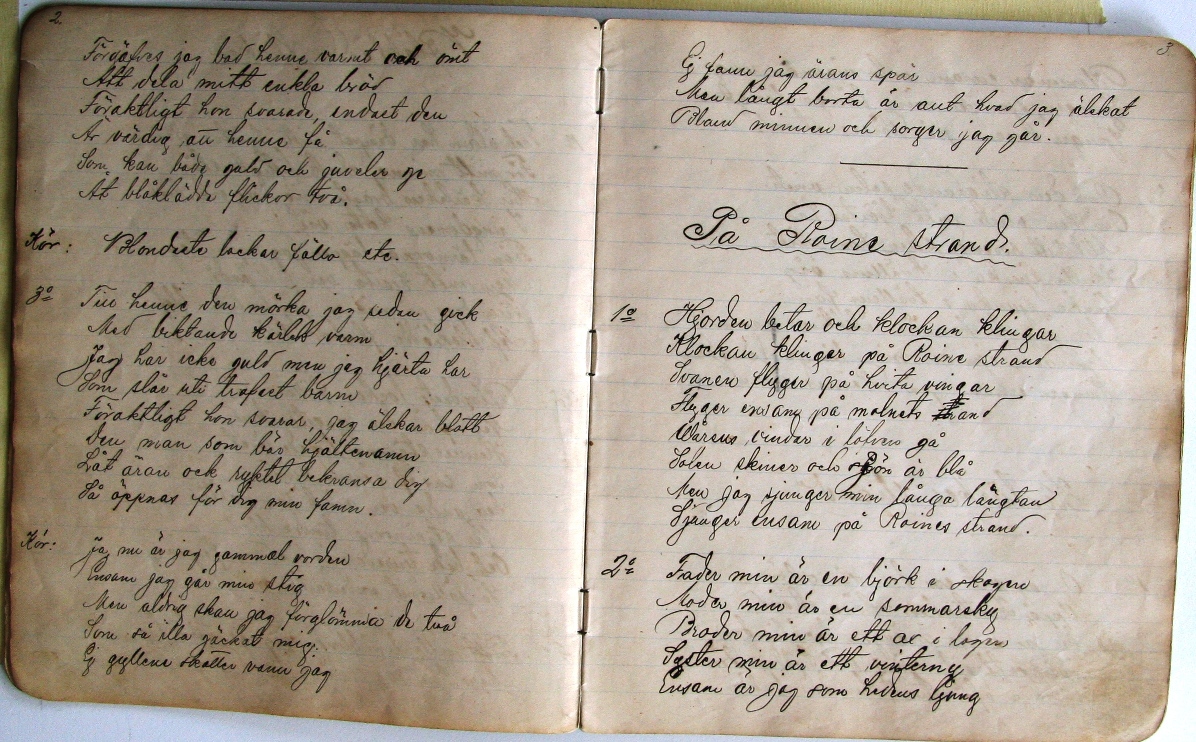 2.
Förgäfves jag bad henne varmt och ömt
Att dela mitt enkla bröd
Föraktligt hon svarade, endast den
Är värdig att henne få
Som kan både guld och juveler ge
Åt blåklädda flickor två.
Kör: Blondaste lockar fälla etc.
3º Till henne den mörka jag sedan gick
Med biktande kärlek varm
Jag har icke guld men jag hjärta har
Som slår uti trofast barm
Föraktligt hon svarar, jag älskar blott
Den man som bär hjältenamn
Låt äran ock ryktet bekransa dig
Så öppnas för dig min famn.
Kör: Ja nu är jag gammal vorden
Ensam jag går min stig
Men aldrig skall jag förglömma de två
Som så illa gäckat mig.
Ej gyllene skatter vann jag
3.
Ej fann jag ärans spår
Men långt borta är allt hvad jag älskat
Bland minnen och sorger jag går.
På Roine strand.
1º Hjorden betar och klockan klingar
Klockan klinger på Roine strand
Svanen flyger på hvita vingar
Flyger ensam på molnets rand
Vårens vindar i löfven gå
Solen skiner och sjön är blå
Men jag sjunger min långa längtan
Sjunger ensam på Roines strand.
2º Fader min är en björk i skogen
Moder min är en sommarsky
Broder min är ett ax i logen
Syster min är ett vinterny
Ensam är jag som hedens ljung